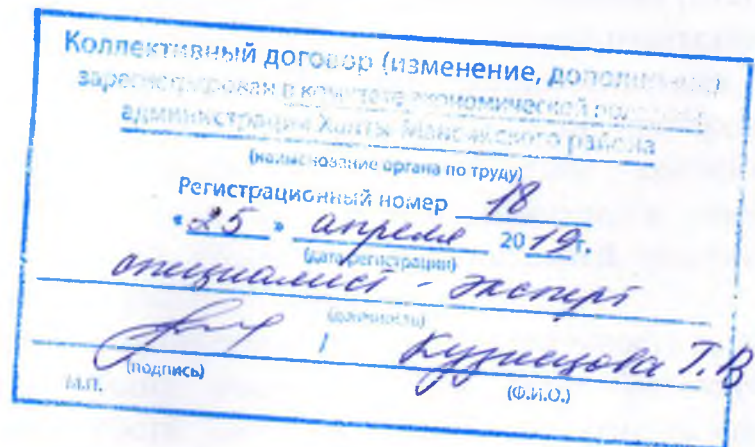 Коллективный договор (изменение, дополнение)
зарегистрирован в комитете экономической политики
администрации Ханты-Мансийского района
(наименование органа по труду)
Регистрационный номер 18
«25» апреля 2019г.
(дата регистрации)
специалист - эксперт
(должность)
/ Кузнецова Т.В
(подпись) (Ф.И.О.)
М.П.